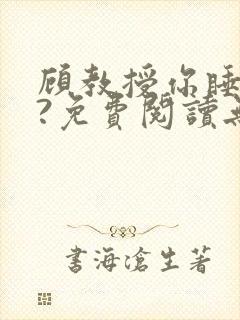 顧教授你睡
?免費閱讀
書海滄生著